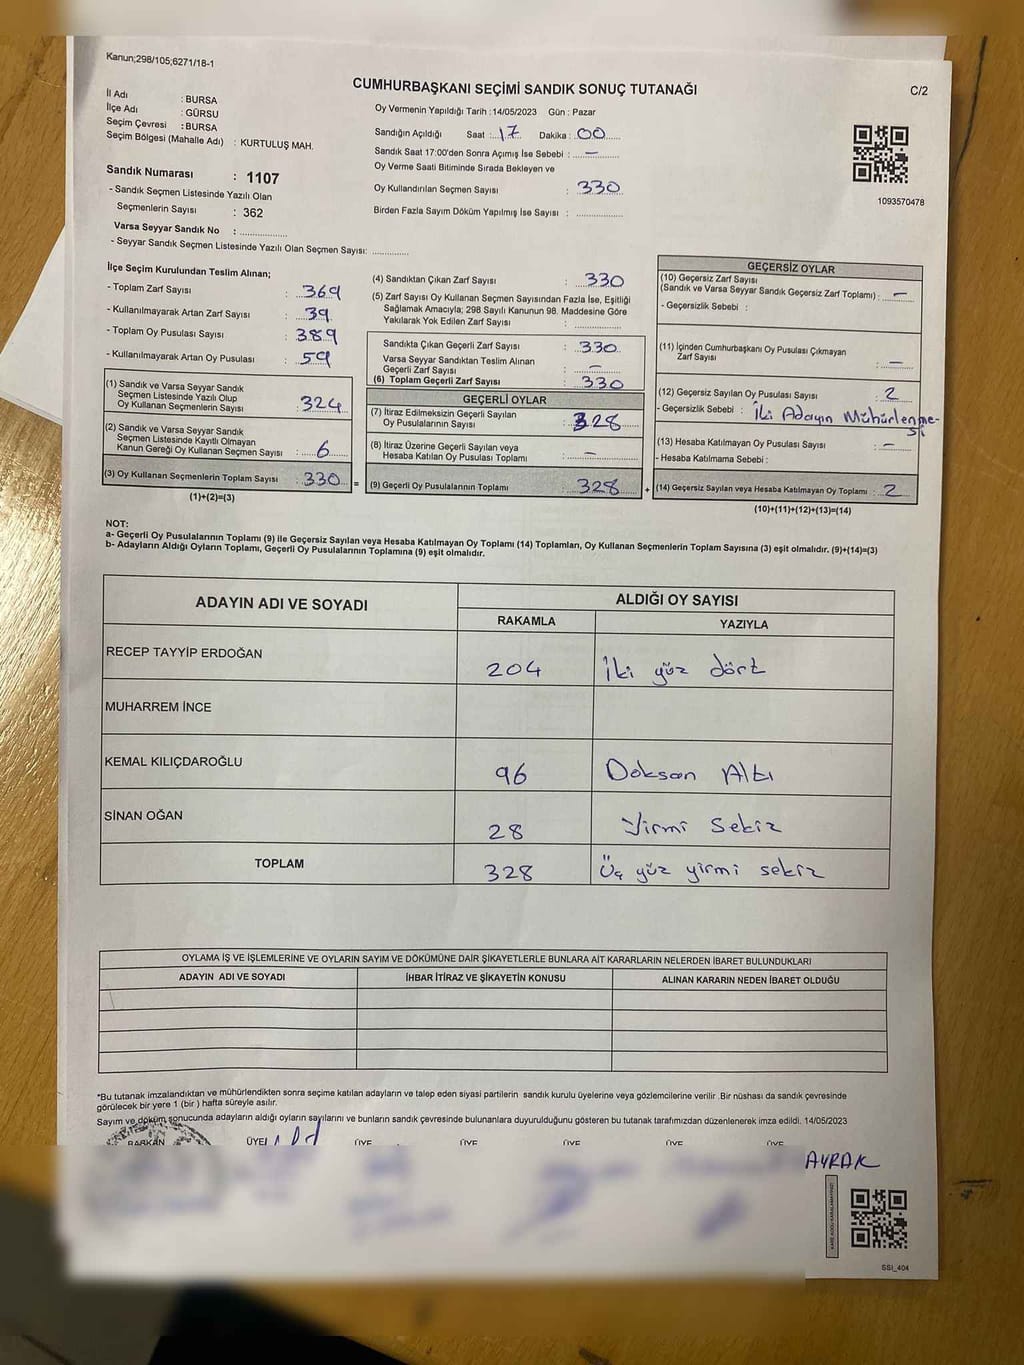 Kanun;298/105;6271/18-1
CUMHURBAŞKANI SEÇİMİ SANDIK SONUÇ TUTANAĞI
C/2
İl Adı : BURSA
İlçe Adı : GÜRSU
Seçim Çevresi : BURSA
Seçim Bölgesi (Mahalle Adı) : KURTULUŞ MAH.
Sandık Numarası : 1107
- Sandık Seçmen Listesinde Yazılı Olan
Seçmenlerin Sayısı : 362
Varsa Seyyar Sandık No : ...............
- Seyyar Sandık Seçmen Listesinde Yazılı Olan Seçmen Sayısı: .............
Oy Vermenin Yapıldığı Tarih :14/05/2023 Gün : Pazar
Sandığın Açıldığı Saat : 17 Dakika : 00
Sandık Saat 17:00'den Sonra Açımış İse Sebebi : —
Oy Verme Saati Bitiminde Sırada Bekleyen ve
Oy Kullandırılan Seçmen Sayısı : 330
Birden Fazla Sayım Döküm Yapılmış İse Sayısı : ...............
1093570478
İlçe Seçim Kurulundan Teslim Alınan;
- Toplam Zarf Sayısı : 369
- Kullanılmayarak Artan Zarf Sayısı : 39
- Toplam Oy Pusulası Sayısı : 389
- Kullanılmayarak Artan Oy Pusulası : 59
(1) Sandık ve Varsa Seyyar Sandık
Seçmen Listesinde Yazılı Olup
Oy Kullanan Seçmenlerin Sayısı : 324
(2) Sandık ve Varsa Seyyar Sandık
Seçmen Listesinde Kayıtlı Olmayan
Kanun Gereği Oy Kullanan Seçmen Sayısı : 6
(3) Oy Kullanan Seçmenlerin Toplam Sayısı : 330 =
(1)+(2)=(3)
(4) Sandıktan Çıkan Zarf Sayısı : 330
(5) Zarf Sayısı Oy Kullanan Seçmen Sayısından Fazla İse, Eşitliği
Sağlamak Amacıyla; 298 Sayılı Kanunun 98. Maddesine Göre
Yakılarak Yok Edilen Zarf Sayısı : ...............
Sandıkta Çıkan Geçerli Zarf Sayısı : 330
Varsa Seyyar Sandıktan Teslim Alınan
Geçerli Zarf Sayısı : —
(6) Toplam Geçerli Zarf Sayısı : 330
GEÇERLİ OYLAR
(7) İtiraz Edilmeksizin Geçerli Sayılan
Oy Pusulalarının Sayısı : 328
(8) İtiraz Üzerine Geçerli Sayılan veya
Hesaba Katılan Oy Pusulası Toplamı : —
(9) Geçerli Oy Pusulalarının Toplamı : 328 +
GEÇERSİZ OYLAR
(10) Geçersiz Zarf Sayısı
(Sandık ve Varsa Seyyar Sandık Geçersiz Zarf Toplamı) : —
- Geçersizlik Sebebi :
(11) İçinden Cumhurbaşkanı Oy Pusulası Çıkmayan
Zarf Sayısı : —
(12) Geçersiz Sayılan Oy Pusulası Sayısı : 2
- Geçersizlik Sebebi : İki Adayın Mühürlenme-
si
(13) Hesaba Katılmayan Oy Pusulası Sayısı : —
- Hesaba Katılmama Sebebi :
(14) Geçersiz Sayılan veya Hesaba Katılmayan Oy Toplamı : 2
(10)+(11)+(12)+(13)=(14)
NOT:
a- Geçerli Oy Pusulalarının Toplamı (9) ile Geçersiz Sayılan veya Hesaba Katılmayan Oy Toplamı (14) Toplamları, Oy Kullanan Seçmenlerin Toplam Sayısına (3) eşit olmalıdır. (9)+(14)=(3)
b- Adayların Aldığı Oyların Toplamı, Geçerli Oy Pusulalarının Toplamına (9) eşit olmalıdır.
ADAYIN ADI VE SOYADI ALDIĞI OY SAYISI
RAKAMLA YAZIYLA
RECEP TAYYİP ERDOĞAN 204 İki yüz dört
MUHARREM İNCE
KEMAL KILIÇDAROĞLU 96 Doksan Altı
SİNAN OĞAN 28 Yirmi Sekiz
TOPLAM 328 Üç yüz yirmi sekiz
OYLAMA İŞ VE İŞLEMLERİNE VE OYLARIN SAYIM VE DÖKÜMÜNE DAİR ŞİKAYETLERLE BUNLARA AİT KARARLARIN NELERDEN İBARET BULUNDUKLARI
ADAYIN ADI VE SOYADI İHBAR İTİRAZ VE ŞİKAYETİN KONUSU ALINAN KARARIN NEDEN İBARET OLDUĞU
*Bu tutanak imzalandıktan ve mühürlendikten sonra seçime katılan adayların ve talep eden siyasi partilerin sandık kurulu üyelerine veya gözlemcilerine verilir .Bir nüshası da sandık çevresinde
görülecek bir yere 1 (bir ) hafta süreyle asılır.
Sayım ve döküm sonucunda adayların aldığı oyların sayılarını ve bunların sandık çevresinde bulunanlara duyurulduğunu gösteren bu tutanak tarafımızdan düzenlenerek imza edildi. 14/05/2023
BAŞKAN ÜYE ÜYE ÜYE ÜYE ÜYE ÜYE
AYRAK
SSI_404